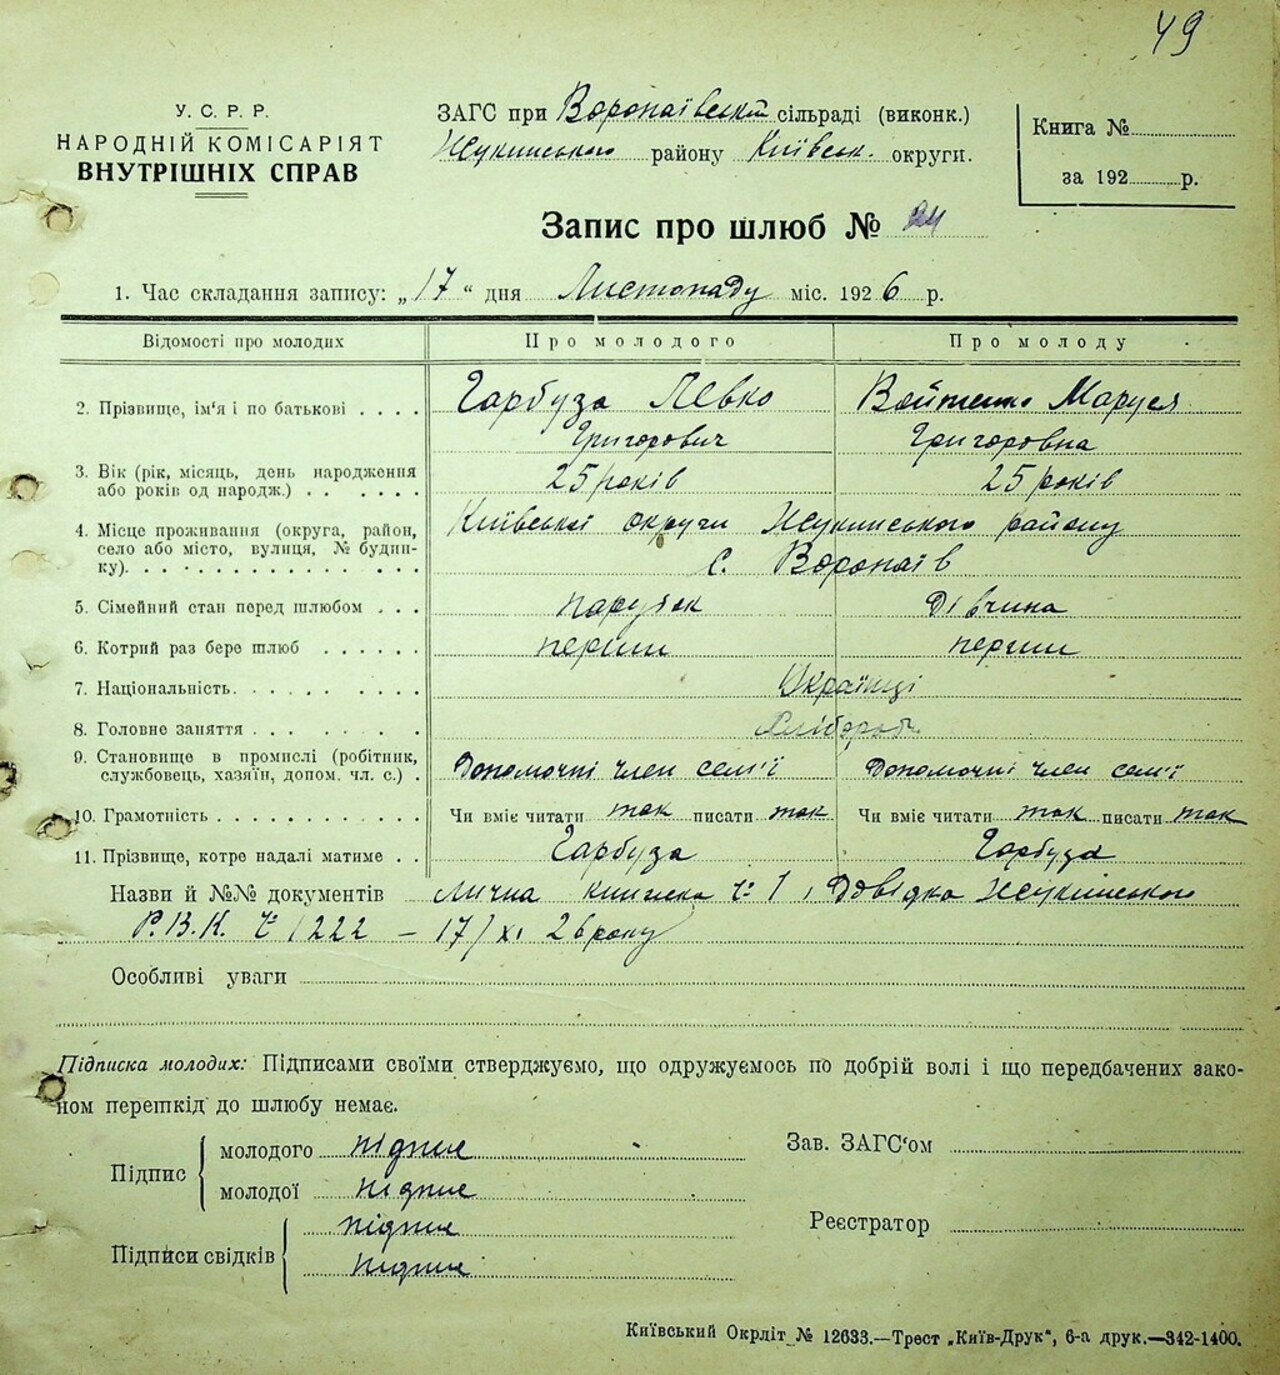 49
У. С. Р. Р.
НАРОДНІЙ КОМІСАРІЯТ
ВНУТРІШНІХ СПРАВ
ЗАГС при Воропаївській сільраді (виконк.)
Жукинського району Київськ. округи.
Книга №
за 192 р.
Запис про шлюб № 24
1. Час складання запису: „17“ дня Листопаду міс. 1926 р.
Відомості про молодих Про молодого Про молоду
2. Прізвище, ім'я і по батькові Гарбуза Левко Войтенко Маруся
Григорович Григоровна
3. Вік (рік, місяць, день народження 25 років 25 років
або років од народж.)
4. Місце проживання (округа, район, Київської округи Жукинського району
село або місто, вулиця, № будин-
ку). с. Воропаїв
5. Сімейний стан перед шлюбом парубок дівчина
6. Котрий раз бере шлюб перший перший
7. Національність. Українці
8. Головне заняття Хлібороб
9. Становище в промислі (робітник, Допомочні член сем'ї Допомочні член сем'ї
службовець, хазяїн, допом. чл. с.)
10. Грамотність Чи вміє читати так писати так Чи вміє читати так писати так
11. Прізвище, котре надалі матиме Гарбуза Гарбуза
Назви й №№ документів Лична книжка № 1 і Довідка Жукинського
Р.В.К. № 1222 – 17/XI 26 року
Особливі уваги
Підписка молодих: Підписами своїми стверджуємо, що одружуємось по добрій волі і що передбачених зако-
ном перешкід до шлюбу немає.
Підпис
молодого підпис
молодої підпис
Підписи свідків
підпис
підпис
Зав. ЗАГС'ом
Реєстратор
Київський Окрліт № 12633.—Трест „Київ-Друк“, 6-а друк.—342-1400.